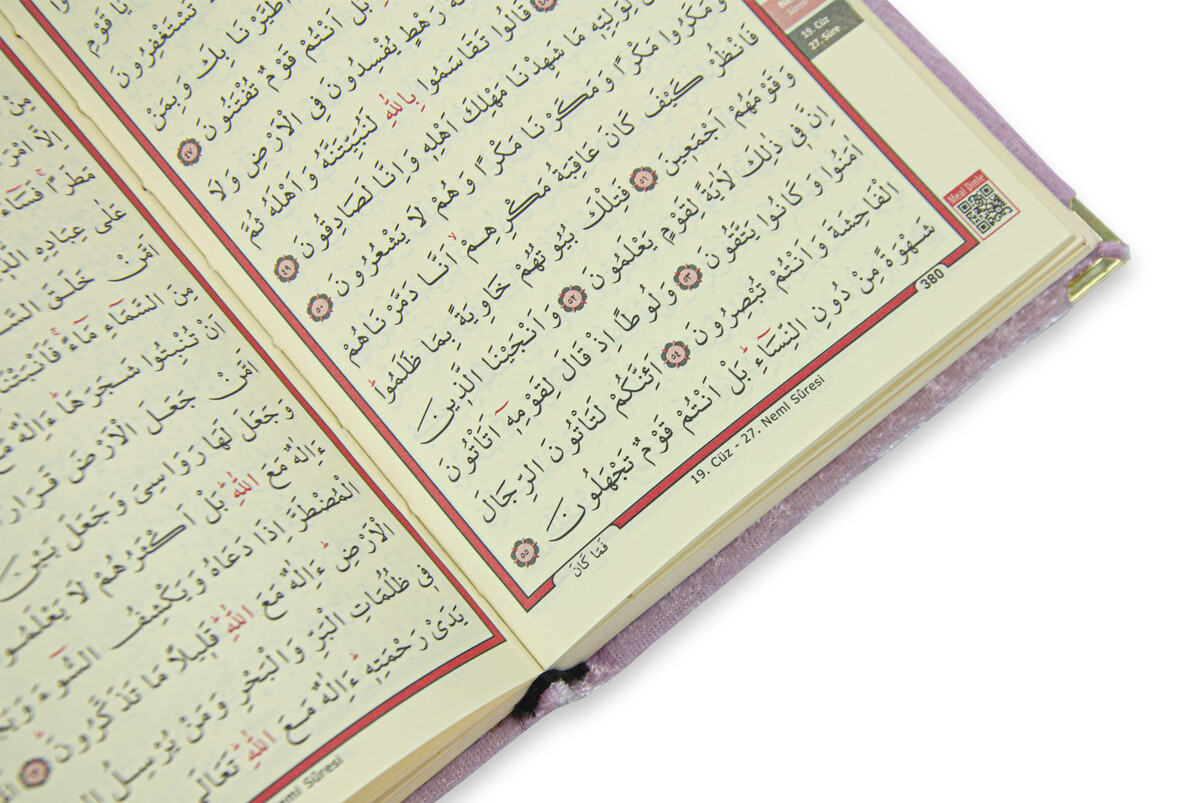 19. Cüz
27. Sûre
يَا قَوْمِ
تَسْتَغْفِرُونَ
اطَّيَّرْنَا بِكَ وَبِمَنْ
بَلْ اَنْتُمْ قَوْمٌ تُفْتَنُونَ ﴿٤٧﴾
رَهْطٍ يُفْسِدُونَ فِي الْاَرْضِ وَلَا
قَالُوا تَقَاسَمُوا بِاللّٰهِ لَنُبَيِّتَنَّهُ وَاَهْلَهُ ثُمَّ
لِوَلِيِّهٖ مَا شَهِدْنَا مَهْلِكَ اَهْلِهٖ وَاِنَّا لَصَادِقُونَ ﴿٤٩﴾
وَمَكَرُوا مَكْرًا وَمَكَرْنَا مَكْرًا وَهُمْ لَا يَشْعُرُونَ ﴿٥٠﴾
فَانْظُرْ كَيْفَ كَانَ عَاقِبَةُ مَكْرِهِمْۙ اَنَّا دَمَّرْنَاهُمْ
وَقَوْمَهُمْ اَجْمَعٖينَ ﴿٥١﴾ فَتِلْكَ بُيُوتُهُمْ خَاوِيَةً بِمَا ظَلَمُواۜ
اِنَّ فٖي ذٰلِكَ لَاٰيَةً لِقَوْمٍ يَعْلَمُونَ ﴿٥٢﴾ وَاَنْجَيْنَا الَّذٖينَ
اٰمَنُوا وَكَانُوا يَتَّقُونَ ﴿٥٣﴾ وَلُوطًا اِذْ قَالَ لِقَوْمِهٖٓ اَتَأْتُونَ
الْفَاحِشَةَ وَاَنْتُمْ تُبْصِرُونَ ﴿٥٤﴾ اَئِنَّكُمْ لَتَأْتُونَ الرِّجَالَ
شَهْوَةً مِنْ دُونِ النِّسَٓاءِۜ بَلْ اَنْتُمْ قَوْمٌ تَجْهَلُونَ ﴿٥٥﴾
فَمَا كَانَ
19. Cüz - 27. Neml Sûresi
380
Meal Dinle
مِنْ
اِلَّا
مَطَرًاۚ فَسَٓاءَ
عَلٰى عِبَادِهِ
اَمَّنْ خَلَقَ
مِنَ السَّمَٓاءِ مَٓاءًۚ فَاَنْبَتْنَا
اَنْ تُنْبِتُوا شَجَرَهَاۜ ءَاِلٰهٌ مَعَ
اَمَّنْ جَعَلَ الْاَرْضَ قَرَارًا
وَجَعَلَ لَهَا رَوَاسِيَ وَجَعَلَ بَيْنَ
ءَاِلٰهٌ مَعَ اللّٰهِۜ بَلْ اَكْثَرُهُمْ لَا يَعْلَمُونَ
الْمُضْطَرَّ اِذَا دَعَاهُ وَيَكْشِفُ السُّٓوءَ
الْاَرْضِۜ ءَاِلٰهٌ مَعَ اللّٰهِۜ قَلٖيلًا مَا تَذَكَّرُونَ
فٖي ظُلُمَاتِ الْبَرِّ وَالْبَحْرِ وَمَنْ يُرْسِلُ
يَدَيْ رَحْمَتِهٖۜ ءَاِلٰهٌ مَعَ اللّٰهِۜ تَعَالَى
Sûresi